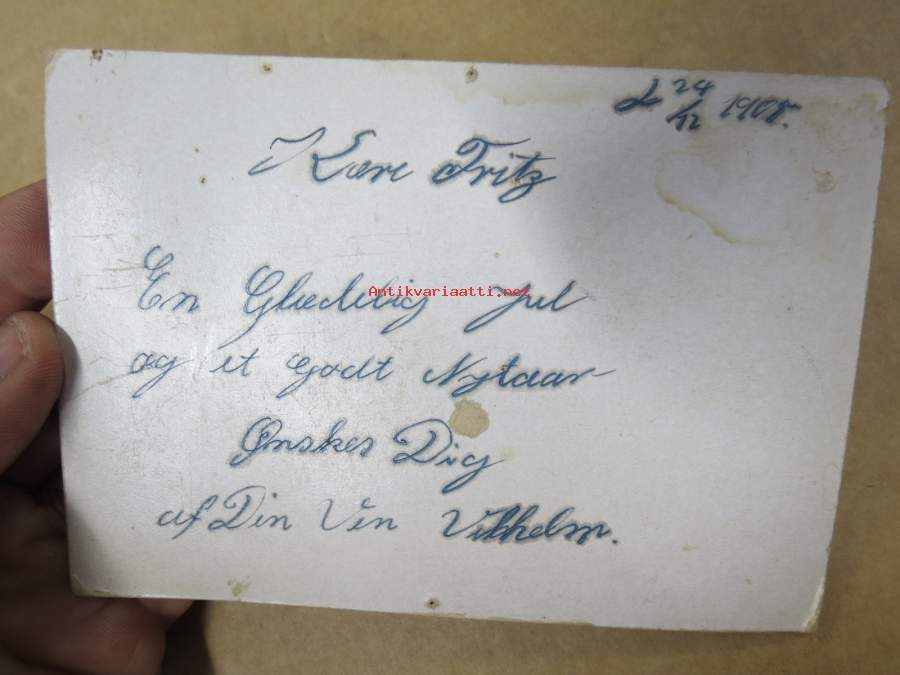 d. 24/12 1908.
Kære Fritz
En Glædelig Jul
Antikvariaatti.net
og et Godt Nytaar
Ønskes Dig
af Din Ven Vilhelm.